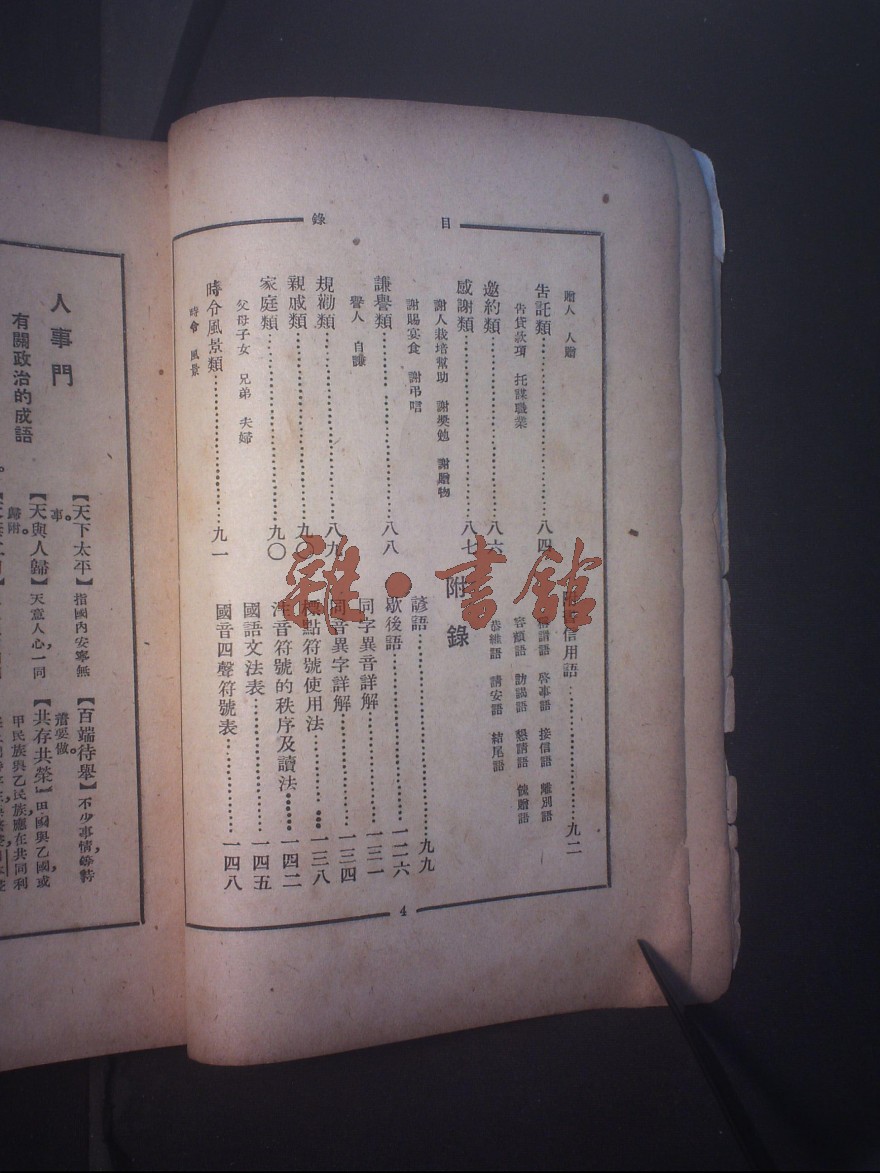 目 錄
贈人 人贈
告託類 八四
告貸款項 托謀職業
邀約類 八六
感謝類 八七
謝人栽培幫助 謝獎勉 謝贈物
謝賜宴食 謝弔唁
謙譽類 八八
譽人 自謙
規勸類 八九
親戚類 九〇
家庭類 九〇
父母子女 兄弟 夫婦
時令風景類 九一
時會 風景
信用語 九二
啓事語 接信語 離別語
容頌語 訪謁語 懇請語 餽贈語
恭維語 請安語 結尾語
附錄
諺語 九九
歇後語 一二六
同字異音詳解 一三一
同音異字詳解 一三四
標點符號使用法 一三八
注音符號的秩序及讀法 一四二
國語文法表 一四五
國音四聲符號表 一四八
4
雜·書館
人事門
有關政治的成語
【天下太平】指國內安寧無
事。
【天與人歸】天意人心,一同
歸附。
【百端待舉】不少事情,
【共存共榮】甲國與乙國,或
甲民族與乙民族,應在共同利